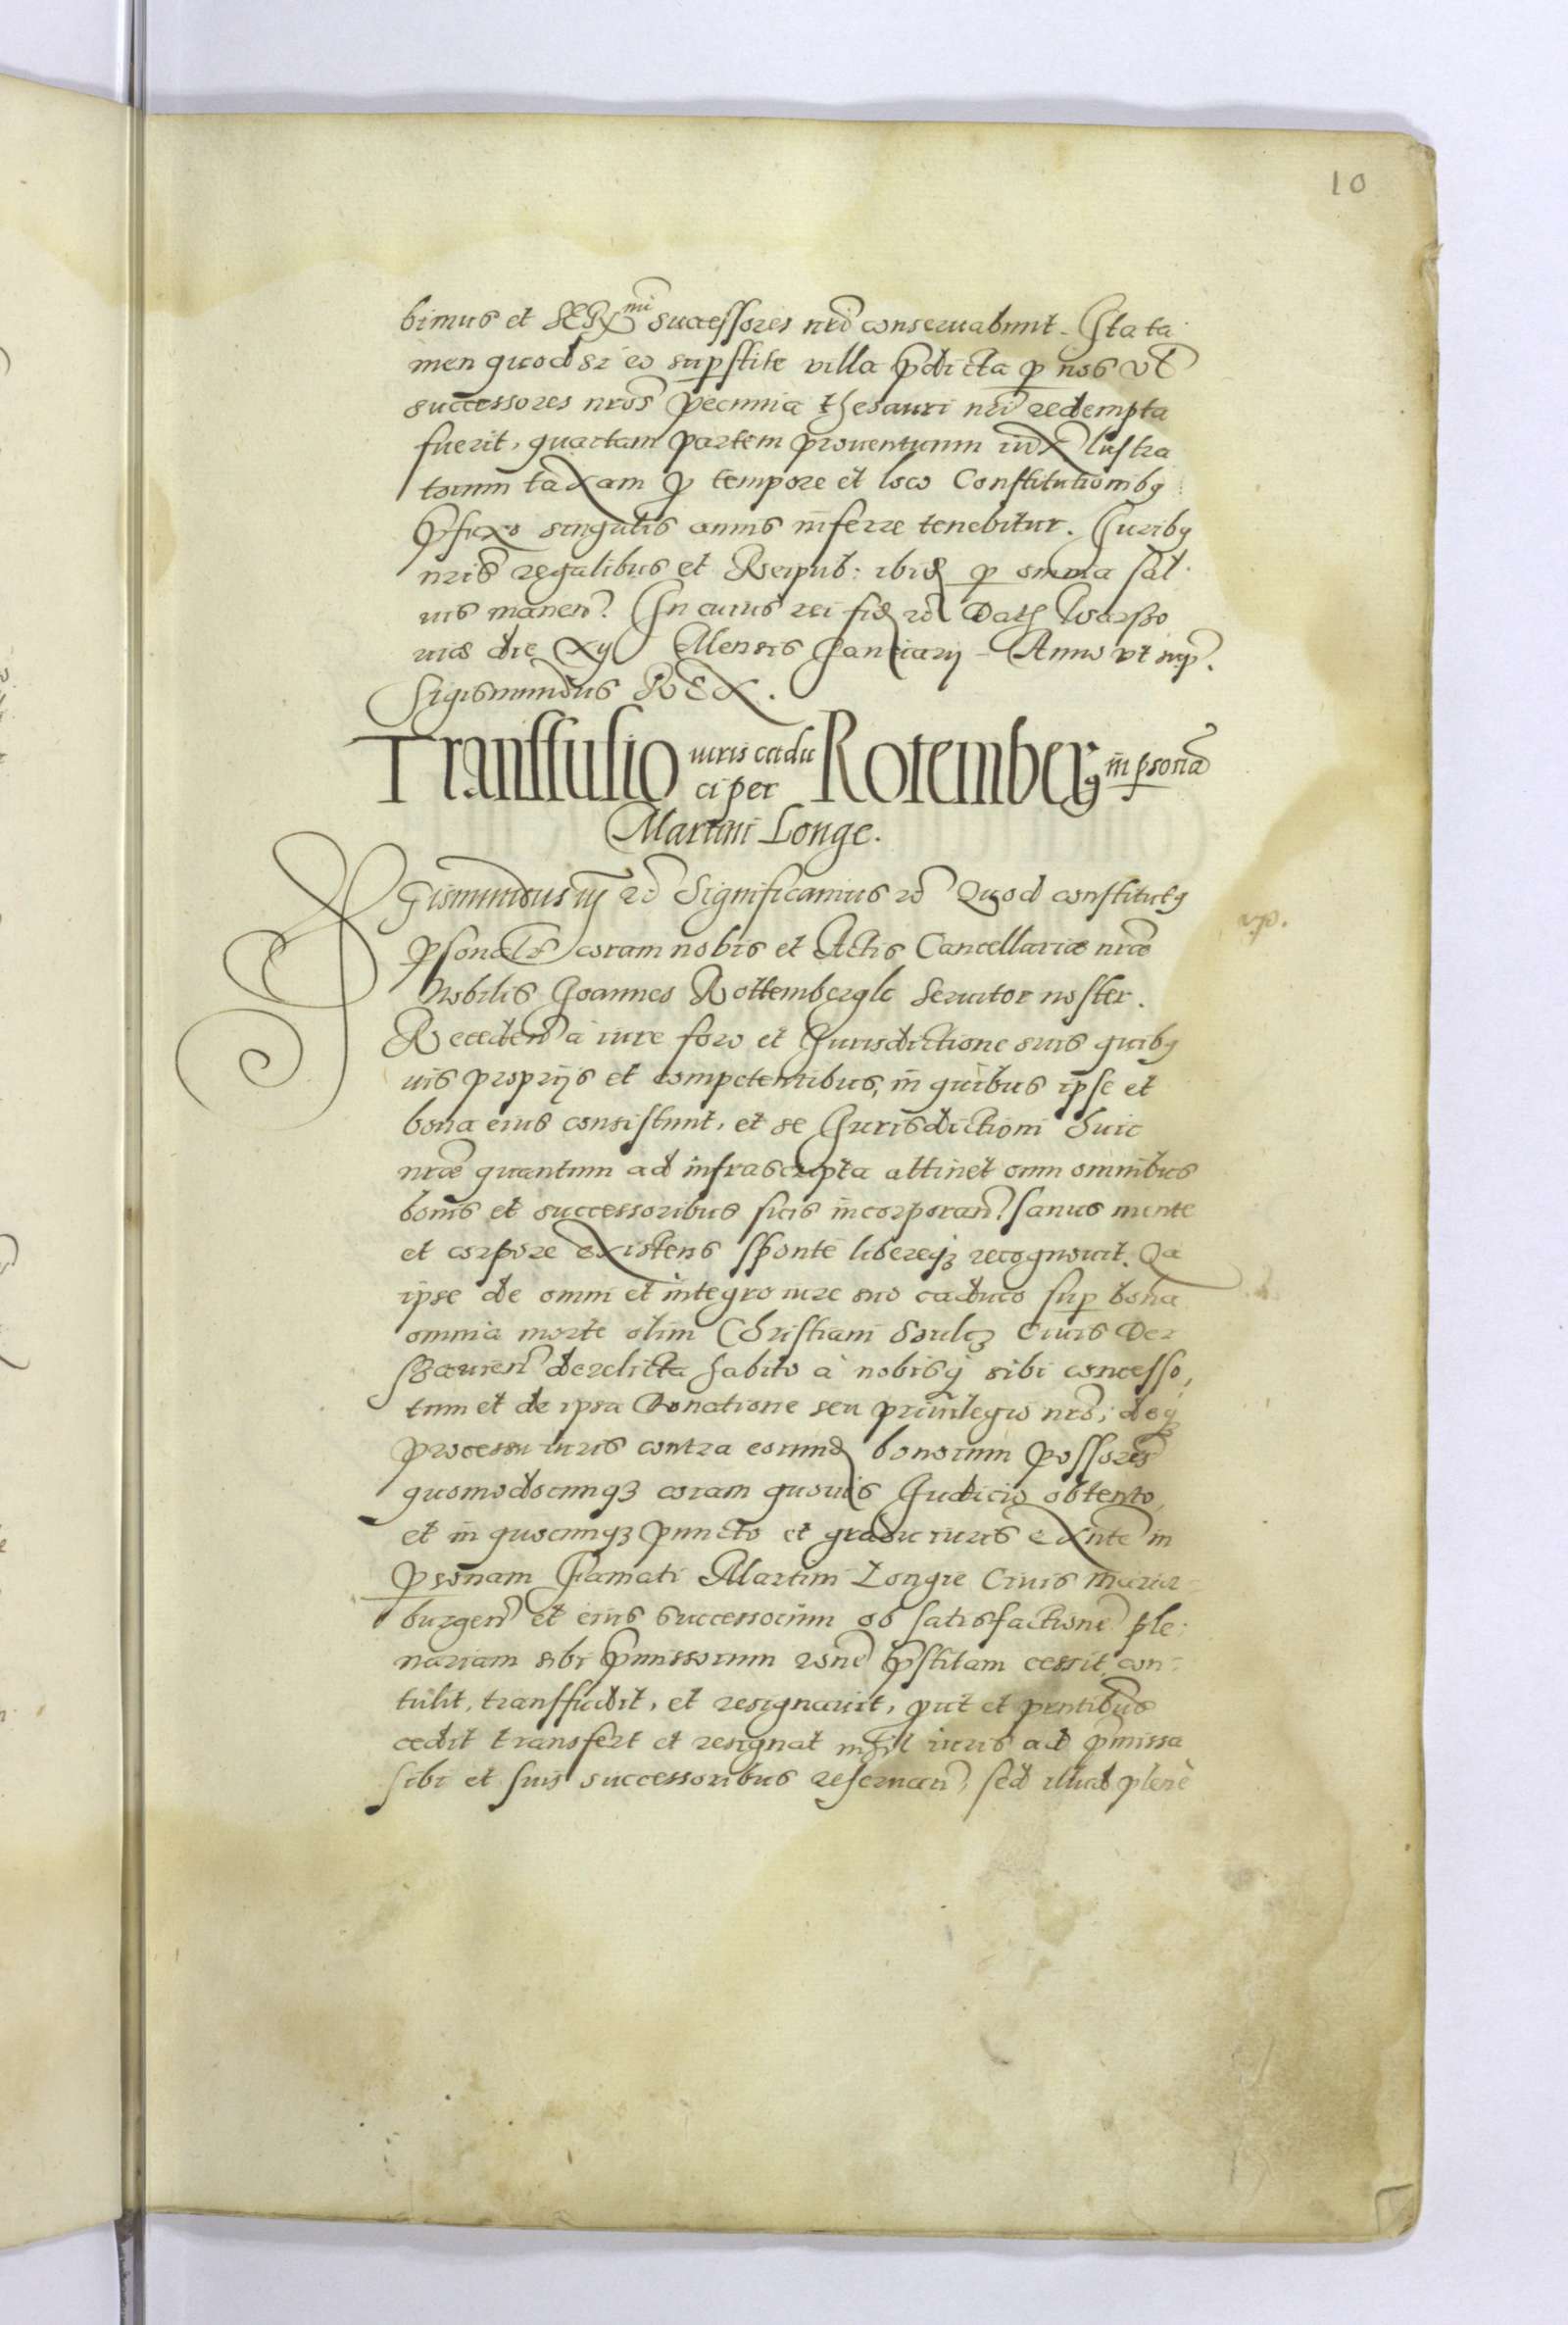 10
bimus et SERmi successores nri conseruabunt. Ita ta
men quod si eo supstite villa pdicta p nos vel
successores nros pecunia thesauri nri redempta
fuerit, quartam partem prouentuum iux lustra
torum taxam p tempore et loco Constitutionibq
pfixo singulis annis inferre tenebitur. Iuribq
nris regalibus et Reipub: ibid p omnia sal
uis manen. In cuius rei fid Dat Warsso
uiæ die xij Mensis Januarij Anno vt sup.
Sigismundus REX.
Transfusio iuris cadu
ci per Rotemberg in psonã
Martini Longe.
Sigismundus iij Significamus Quod constitutq
psonalr coram nobis et Actis Cancellariæ nræ
Nobilis Joannes Rottembergk Seruitor noster.
Receden à iure foro et Jurisdictione suis quibq
uis proprijs et competentibus, in quibus ipse et
bona eius consistunt, et se Jurisdictioni huic
nræ quantum ad infrascripta attinet cum omnibus
bonis et successoribus suis incorporan. sanus mente
et corpore existens sponte libereq recognouit. Qa
ipse de omni et integro iure suo caduco sup bona
omnia morte olim Christiani Soulcz Ciuis Der
szauien derelicta habito à nobisq sibi concesso,
tum et de ipsa Donatione seu priuilegio nro, deq
processu iuris contra eorund bonorum possores
quomodocunq coram quouis Judicio obtento,
et in quocunq puncto et gradu iuris exnte in
psonam Famati Martini Longe Ciuis mariæ
burgen et eius successorum ob satisfactione ple
nariam sibi pmissorum rone pstitam cessit con
tulit, transfudit, et resignauit, put et pntibus
cedit transfert et resignat nihil iuris ad pmissa
sibi et suis successoribus reseruan, sed illud plene